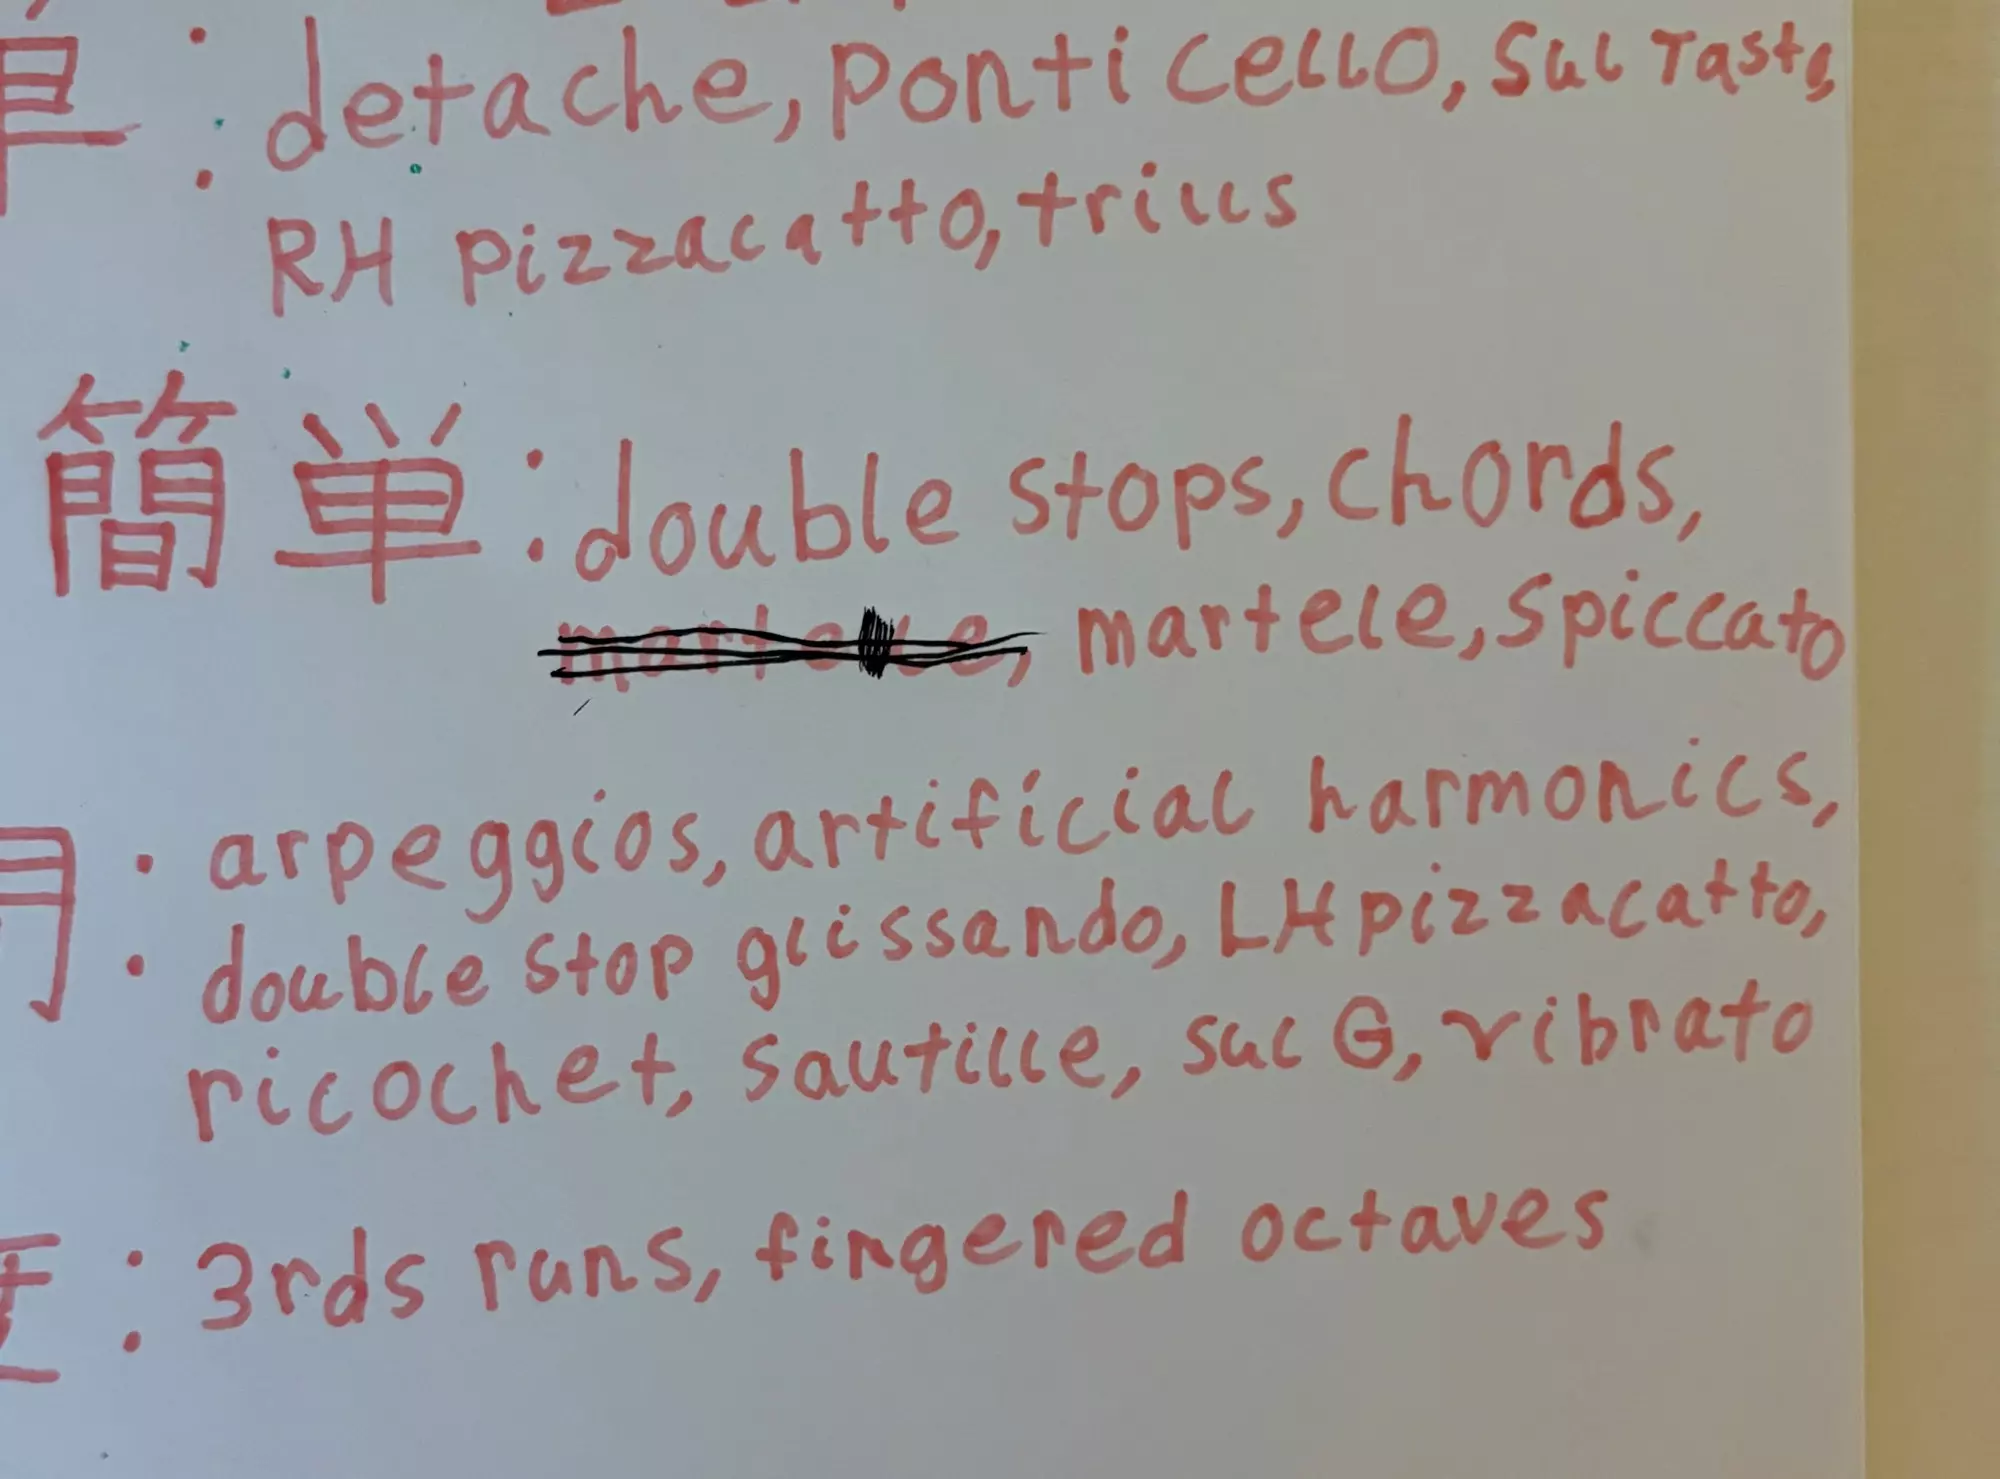 : detache, ponticello, sul Tasto,
RH pizzacatto, trills
簡単: double stops, chords,
martele, spiccato
: arpeggios, artificial harmonics,
double stop glissando, LH pizzacatto,
ricochet, sautille, sul G, vibrato
: 3rds runs, fingered octaves